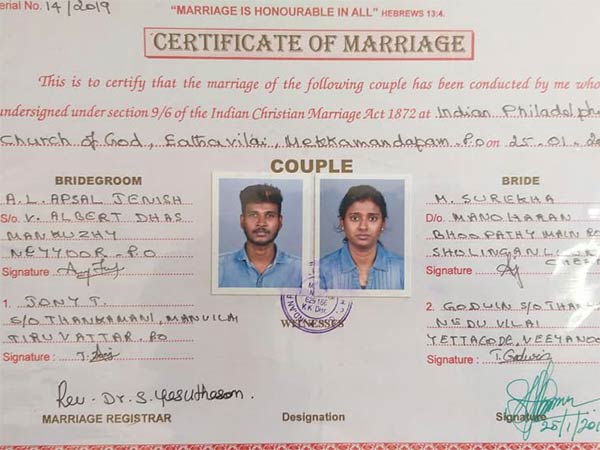 erial No. 14/2019
"MARRIAGE IS HONOURABLE IN ALL" HEBREWS 13:4.
CERTIFICATE OF MARRIAGE
This is to certify that the marriage of the following couple has been conducted by me who
undersigned under section 9/6 of the Indian Christian Marriage Act 1872 at Indian Philadelph
Church of God, Eathavilai, Mekkamandapam.P.o on 25.01.20
COUPLE
BRIDEGROOM
A.L. APSAL JENISH
S/o V. ALBERT DHAS
MANKUZHY
NEYYOOR.P.O
Signature :
BRIDE
M. SUREKHA
D/o MANOHARAN
BHOOPATHY MAIN RO
SHOLINGANLLUR
CHE
Signature :
629 166
KK Dist
WITNESSES
1. JONY T.
S/O THANKAMANI, MANVILAI
TIRUVATTAR. PO
Signature :
2. GODWIN S/O THAN
NEDUVILAI
YETTACODE, VEEYANOO
Signature : T. Godwin
Rev. Dr. S. Yesuthason.
MARRIAGE REGISTRAR
Designation
Signature
25/1/201